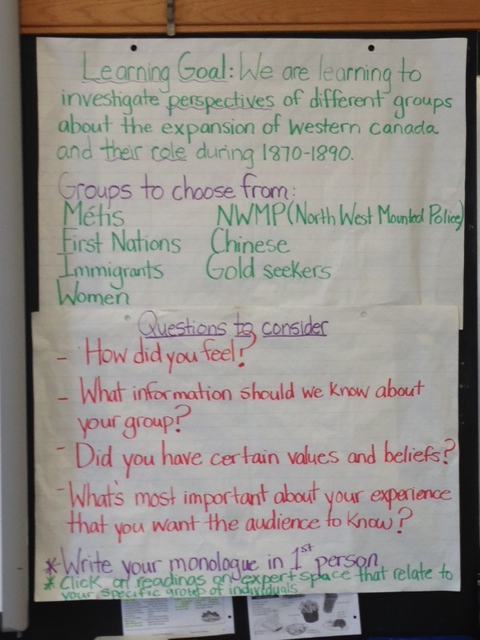 Learning Goal: We are learning to
investigate perspectives of different groups
about the expansion of western canada
and their role during 1870-1890.
Groups to choose from:
Métis NWMP (North West Mounted Police)
First Nations Chinese
Immigrants Gold seekers
Women
Questions to consider
- How did you feel?
- What information should we know about
your group?
- Did you have certain values and beliefs?
- What's most important about your experience
that you want the audience to know?
* Write your monologue in 1st person
* Click on readings on expert space that relate to
your specific group of individuals